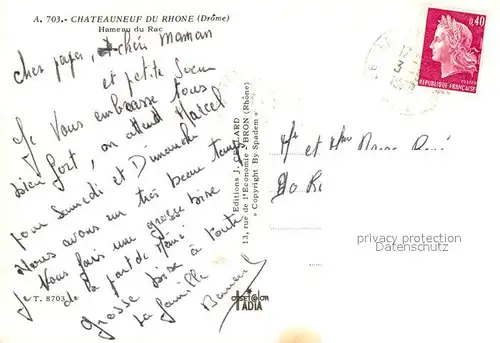 A. 703.- CHATEAUNEUF DU RHONE (Drôme)
Hameau du Rac
Cher papa, et chère Maman
et petite Sœur
Je Vous embrasse tous
bien fort, on attend Marcel
pour Samedi et Dimanche
Nous avons un très beau temps
Je Vous fais une grosse bise
de la part de Mémé
grosse bise à toute
la famille
T. 8703
Editions J. CELLARD
13, rue de l'Economie - BRON (Rhône)
« Copyright By Spadem »
OFFSET COLOR
IADIA
0,40
REPUBLIQUE FRANCAISE
POSTES
et René
privacy protection
Datenschutz